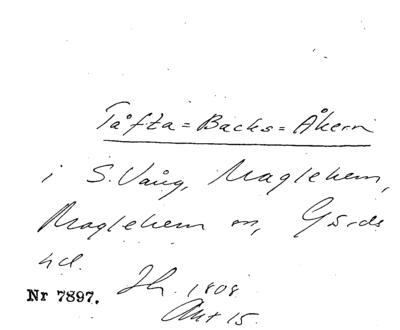 Tåfta=Backs=Åkern
i S. Vång, Maglehem,
Maglehem sn, Gärds
hd.
Nr 7897. Jh. 1808
Akt 15.